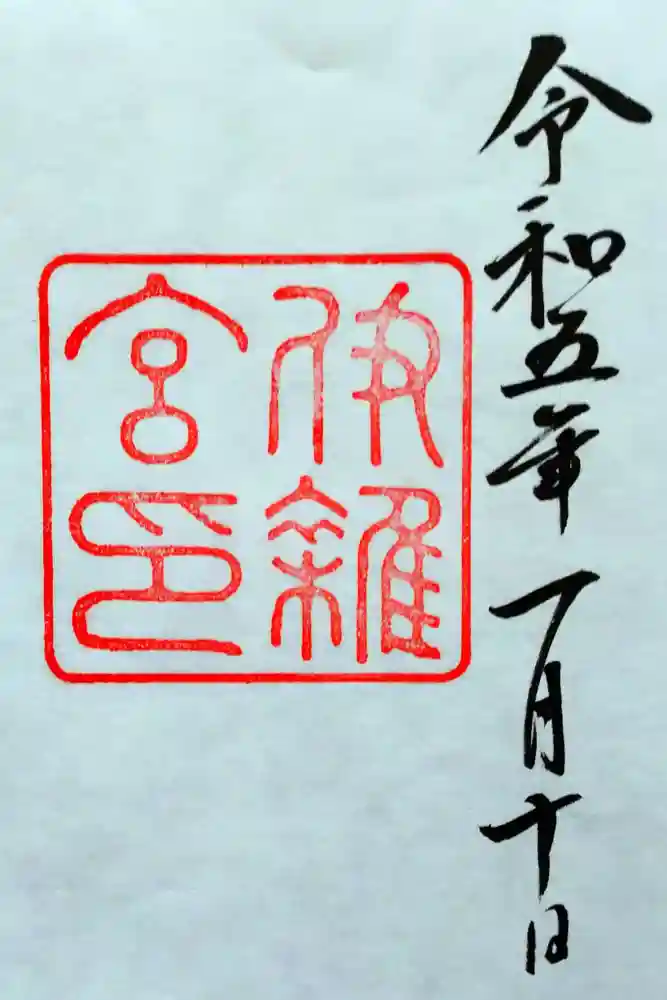 令和五年一月十日
伊雜
宮印